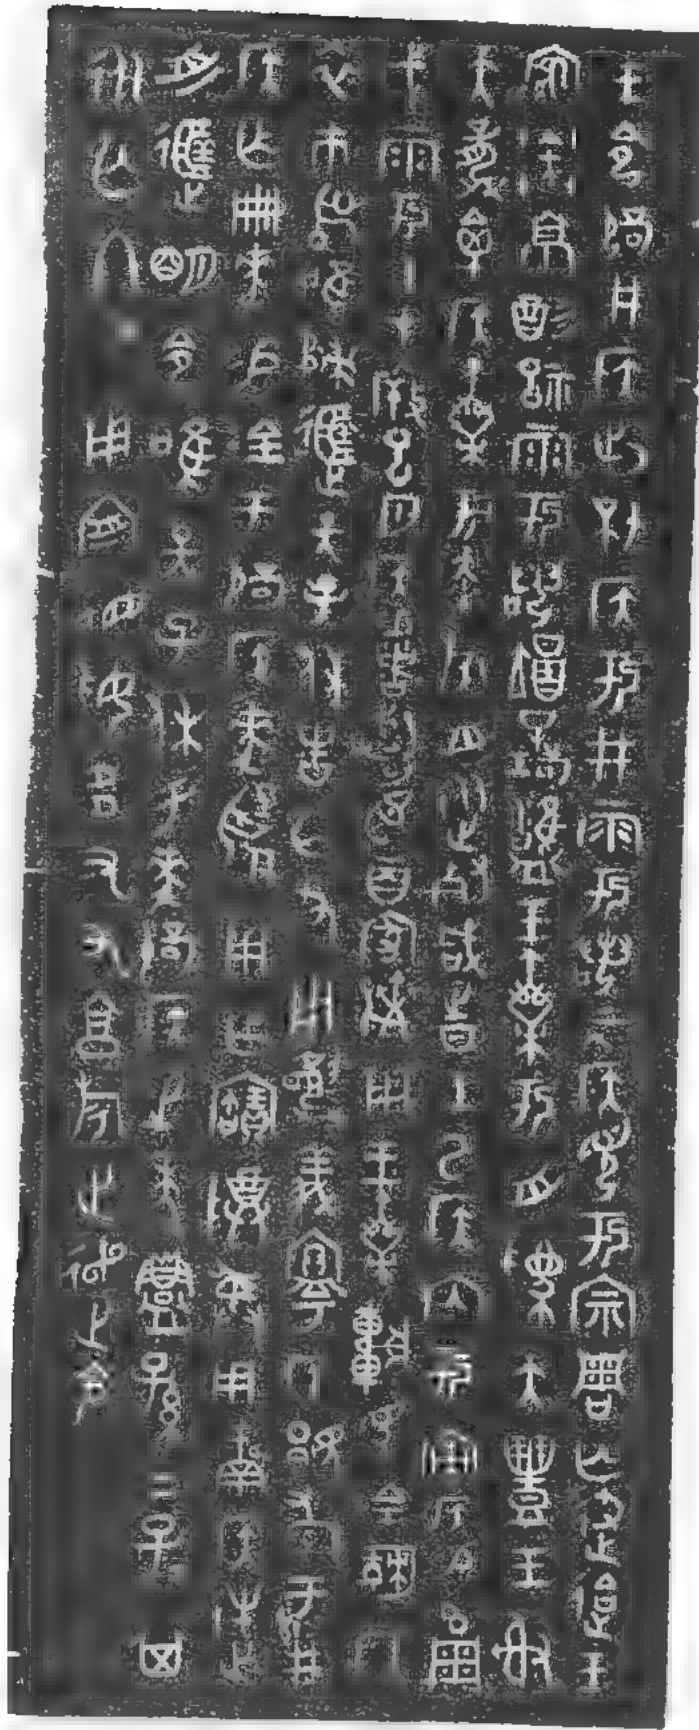 王令辟井侯出坏侯于井雩若二月侯見于宗周亡尤會王
客葊京酌祀雩若翌日在璧雍王乘于舟為大豐王射
大龏禽侯乘于赤旂舟從死咸之日王以侯內于寢侯易玄周
戈雩王在斥巳夕侯易者臣二百家劑用王乘車馬金勒冂
衣巿舄唯歸揚天子休告亡尤用龏義寧侯覭孝于井
侯乍冊麥易金于辟侯麥揚用乍寶尊彝用鬲侯逆造
遟明令唯天子休于麥辟侯之年鑄孫孫子子其永亡
冬冬用造德妥多友享旋走令